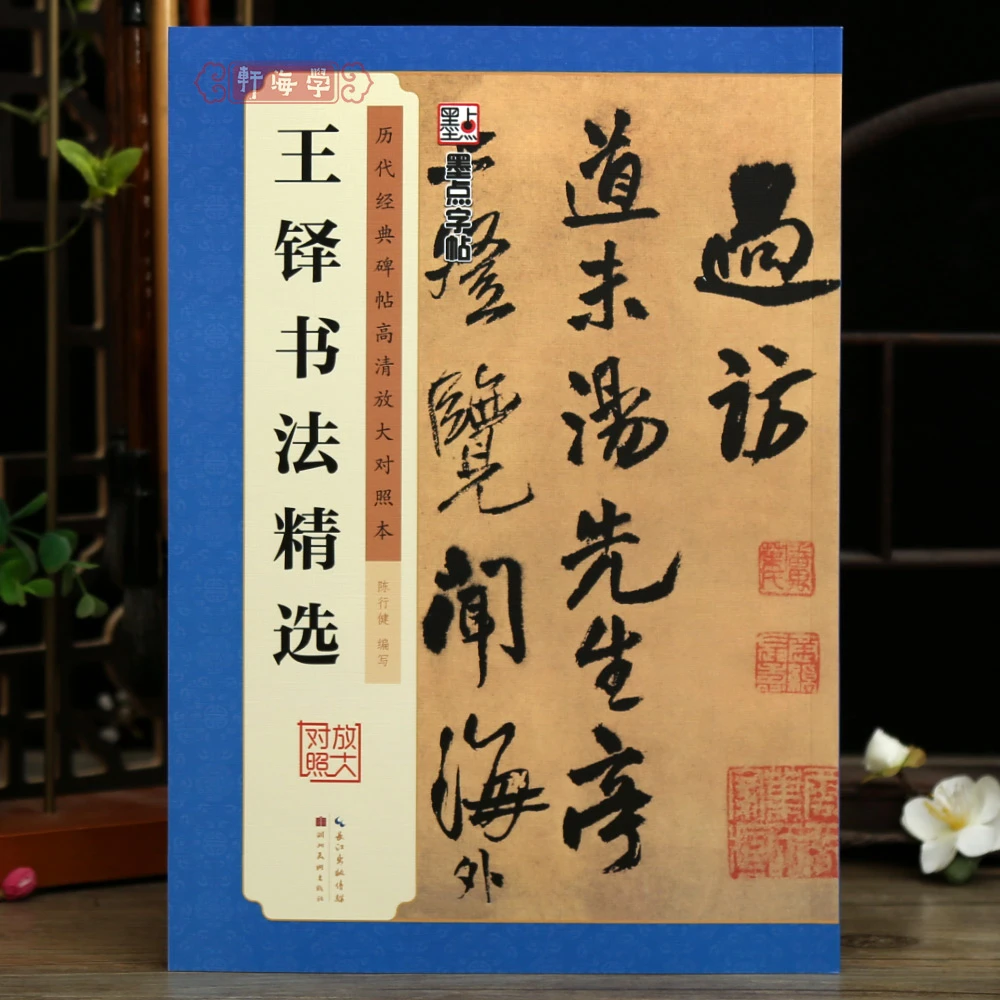 軒海學
王铎书法精选
历代经典碑帖高清放大对照本
陈行健 编写
放大
对照
长江出版传媒
湖北美术出版社
墨点
墨点字帖
過訪
道未湯先生亭
上登覽聞海外